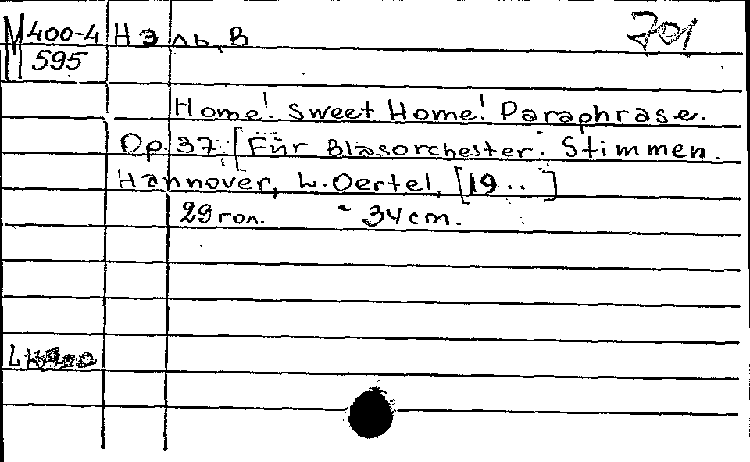 М 400-4 Нэль, В 701
595
Home! Sweet Home! Paraphrase.
Op. 37. [Für Blasorchester. Stimmen.
Hannover, L. Oertel, [19..]
29 гол. 34 cm.